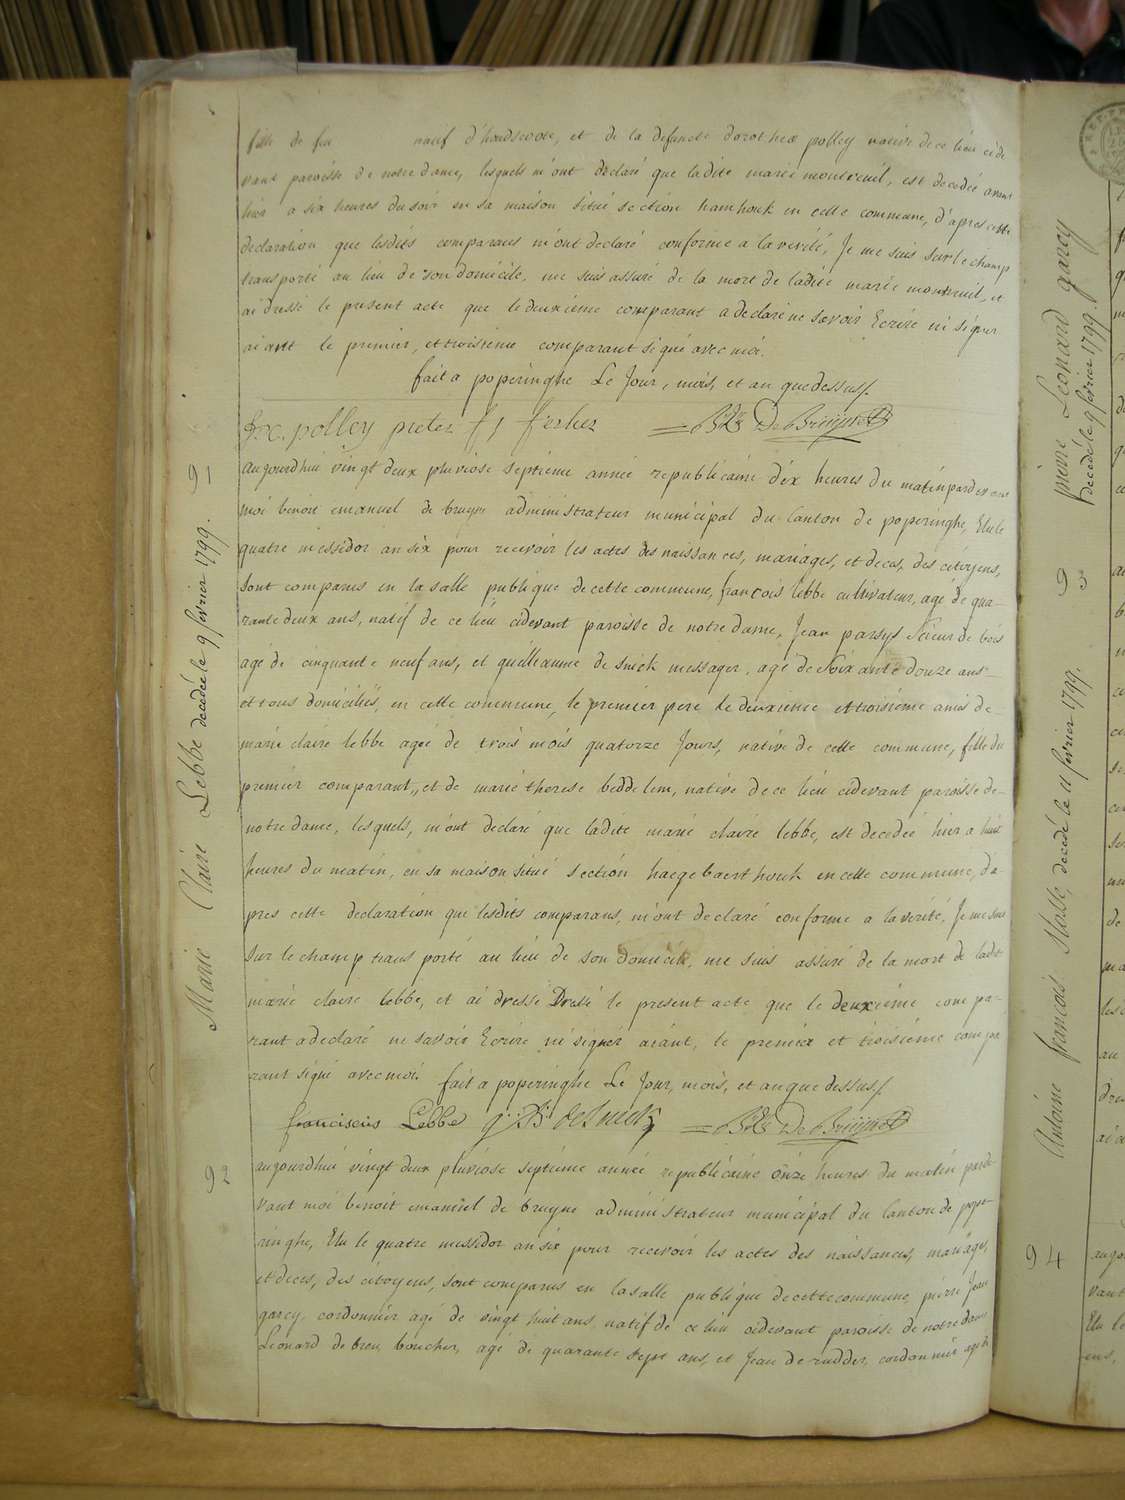 fille de feu natif d'hondscote, et de la defuncte dorothea polley native de ce lieu cide
vant paroisse de notre dame, lesquels m'ont declaré que ladite marie montreuil, est decedée avant
hier a six heures du soir en sa maison situé section hamhouk en cette commune, d'apres cette
declaration que lesdits comparans m'ont declaré conforme a la verité, Je me suis sur le champ
transporté au lieu de son domicile, me suis assuré de la mort de ladite marie montreuil, et
ai dressé le present acte que le deuxieme comparant a declaré ne savoir Ecrire ni signer
aiant le premier, et troisieme comparant signé avec moi.
fait a poperinghe Le Jour, mois, et an que dessus/.
polley pieter
De Bruijne
91
aujourdhui vingt deux pluviose septieme année republicaine dix heures du matin pardevant
moi benoit emanuel de bruyne administrateur municipal du Canton de poperinghe, Elu le
quatre messidor an six pour recevoir les actes des naissances, mariages, et deces, des citoyens,
sont comparus en la salle publique de cette commune, françois lebbe cultivateur, agé de qua-
rante deux ans, natif de ce lieu cidevant paroisse de notre dame, Jean parsys Scieur de bois
agé de cinquante neuf ans, et guilleaume de snick messager, agé de Soixante douze ans
et tous domiciliés, en cette commune, le premier pere le deuxieme et troisieme amis de
marie claire lebbe agée de trois mois quatorze Jours, native de cette commune, fille du
premier comparant,, et de marie therese beddelem, native de ce lieu cidevant paroisse de
notre dame, lesquels, m'ont declaré que ladite marie claire lebbe, est decedée hier a huit
heures du matin, en sa maison situé section haegebaert houk en cette commune, da
pres cette declaration que lesdits comparans, m'ont declaré conforme a la verité, Je me suis
sur le champ transporté au lieu de son domicile, me suis assuré de la mort de ladite
marie claire lebbe, et ai dressé Dressé le present acte que le deuxieme compa-
rant a declaré ne savoir Ecrire ni signer aiant, le premier et troisieme compa
rant signé avec moi. fait a poperinghe Le Jour, mois, et an que dessus/.
franciscus Lebbe De Bruijne
92
aujourdhui vingt deux pluviose septieme année republicaine onze heures du matin parde
vant moi benoit emanuel de bruyne administrateur municipal du Canton de pope
ringhe, Elu le quatre messidor an six pour recevoir les actes des naissances, mariages,
et deces, des citoyens, sont comparus en la salle publique de cette commune, pierre Jean
garcy, cordonnier agé de vingt huit ans, natif de ce lieu cidevant paroisse de notre dame
Leonard de breu boucher, agé de quarante sept ans, et Jean de rudder, cordonnier agé de
Marie Claire Lebbe decedée le 9 février 1799.
pierre Leonard garcy
decédé le 9 février 1799.
93
Antoine françois decédé le 11 février 1799.
94